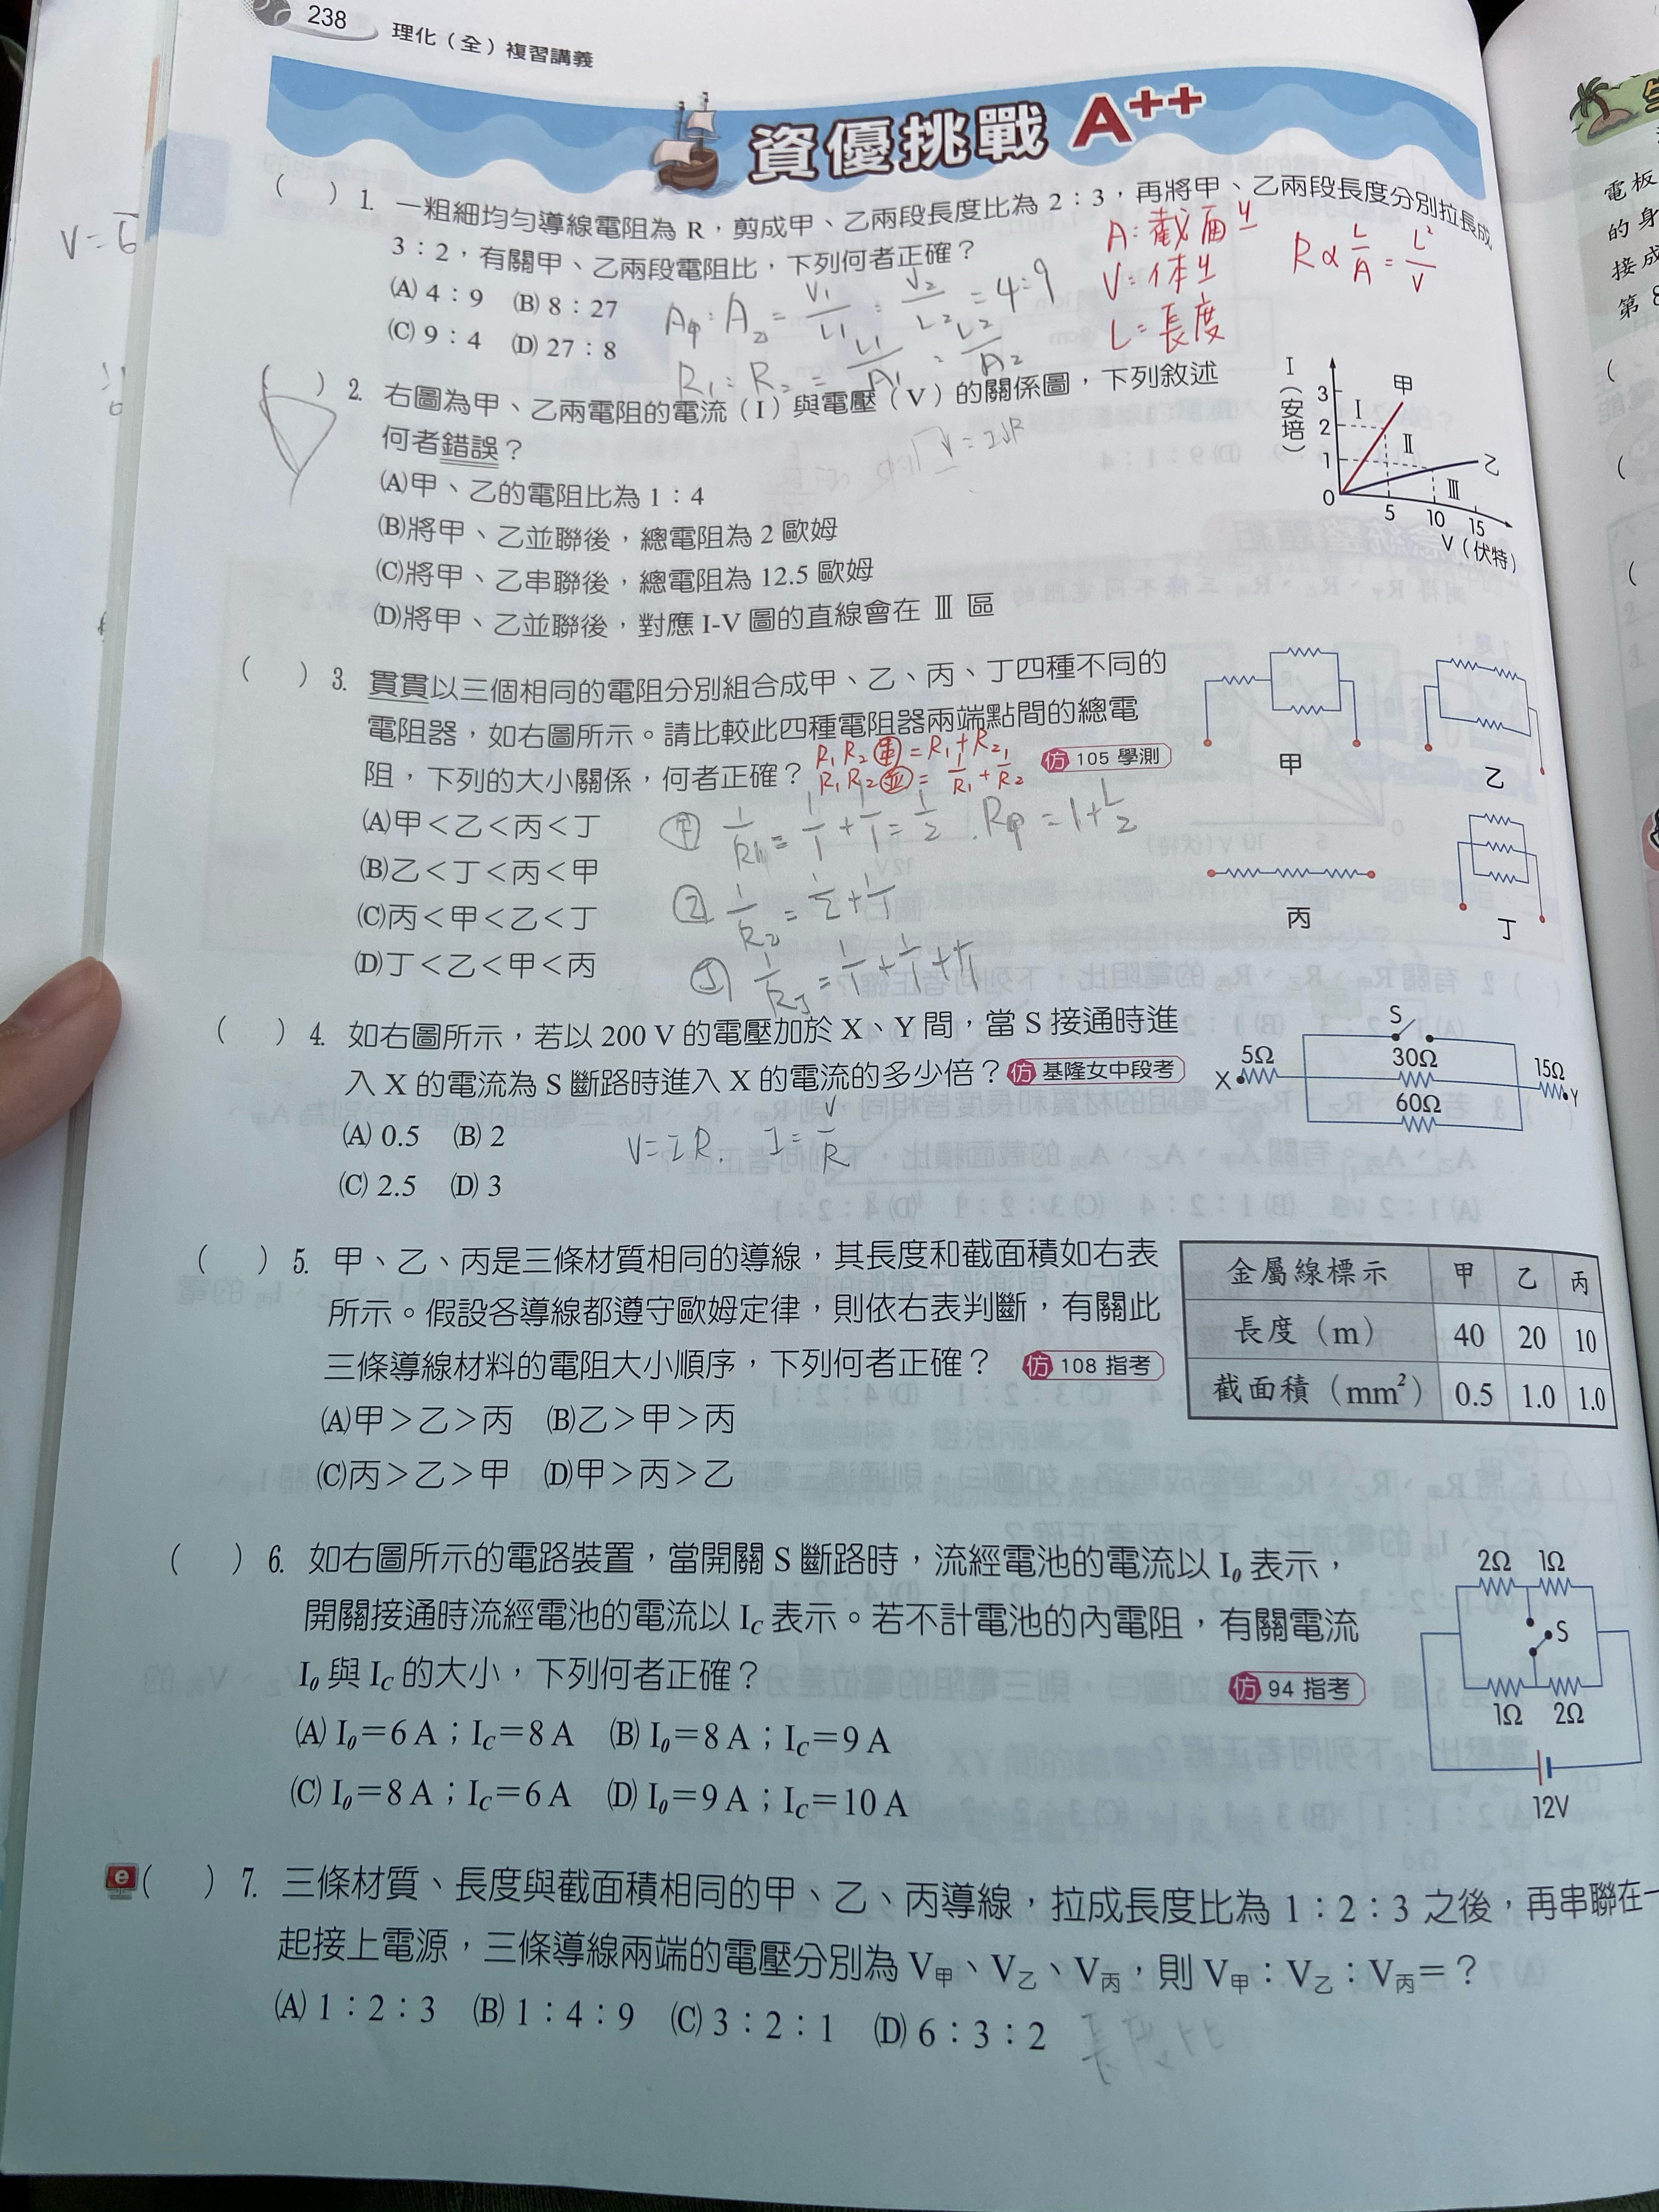 238
理化（全）複習講義
資優挑戰 A++
（　）1. 一粗細均勻導線電阻為 R，剪成甲、乙兩段長度比為 2：3，再將甲、乙兩段長度分別拉長成
3：2，有關甲、乙兩段電阻比，下列何者正確？
(A) 4：9　(B) 8：27
(C) 9：4　(D) 27：8
A甲：A乙 = V1/L1 : V2/L2 = 4:9
R1：R2 = L1/A1 : L2/A2
A：截面ㄐ
V=体ㄐ
L=長度
R∝L/A=L²/V
（　）2. 右圖為甲、乙兩電阻的電流（I）與電壓（V）的關係圖，下列敘述
何者錯誤？
(A)甲、乙的電阻比為 1：4
(B)將甲、乙並聯後，總電阻為 2 歐姆
(C)將甲、乙串聯後，總電阻為 12.5 歐姆
(D)將甲、乙並聯後，對應 I-V 圖的直線會在 Ⅲ 區
I（安培）
3
2
1
0
5
10
15
V（伏特）
甲
乙
Ⅰ
Ⅱ
Ⅲ
（　）3. 貫貫以三個相同的電阻分別組合成甲、乙、丙、丁四種不同的
電阻器，如右圖所示。請比較此四種電阻器兩端點間的總電
阻，下列的大小關係，何者正確？
仿 105 學測
R1 R2 串 = R1+R2
R1 R2 並 = 1/R1 + 1/R2
(A)甲＜乙＜丙＜丁
(B)乙＜丁＜丙＜甲
(C)丙＜甲＜乙＜丁
(D)丁＜乙＜甲＜丙
甲
乙
丙
丁
（　）4. 如右圖所示，若以 200 V 的電壓加於 X、Y 間，當 S 接通時進
入 X 的電流為 S 斷路時進入 X 的電流的多少倍？ 仿 基隆女中段考
(A) 0.5　(B) 2
(C) 2.5　(D) 3
V=IR. I=V/R
S
5Ω
30Ω
60Ω
15Ω
X
Y
（　）5. 甲、乙、丙是三條材質相同的導線，其長度和截面積如右表
所示。假設各導線都遵守歐姆定律，則依右表判斷，有關此
三條導線材料的電阻大小順序，下列何者正確？ 仿 108 指考
(A)甲＞乙＞丙　(B)乙＞甲＞丙
(C)丙＞乙＞甲　(D)甲＞丙＞乙
金屬線標示 甲 乙 丙
長度（m） 40 20 10
截面積（mm²） 0.5 1.0 1.0
（　）6. 如右圖所示的電路裝置，當開關 S 斷路時，流經電池的電流以 I0 表示，
開關接通時流經電池的電流以 IC 表示。若不計電池的內電阻，有關電流
I0 與 IC 的大小，下列何者正確？ 仿 94 指考
(A) I0＝6 A；IC＝8 A　(B) I0＝8 A；IC＝9 A
(C) I0＝8 A；IC＝6 A　(D) I0＝9 A；IC＝10 A
2Ω 1Ω
S
1Ω 2Ω
12V
e（　）7. 三條材質、長度與截面積相同的甲、乙、丙導線，拉成長度比為 1：2：3 之後，再串聯在一
起接上電源，三條導線兩端的電壓分別為 V甲、V乙、V丙，則 V甲：V乙：V丙＝？
(A) 1：2：3　(B) 1：4：9　(C) 3：2：1　(D) 6：3：2
長度比